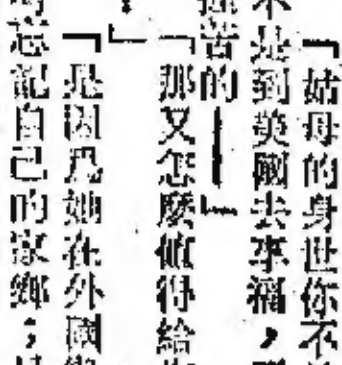 「姑母的身世你不
不是到英國去享福，
苦的——」
「那又怎麼值得給
」
「是因爲她在外國
忘記自己的家鄉；